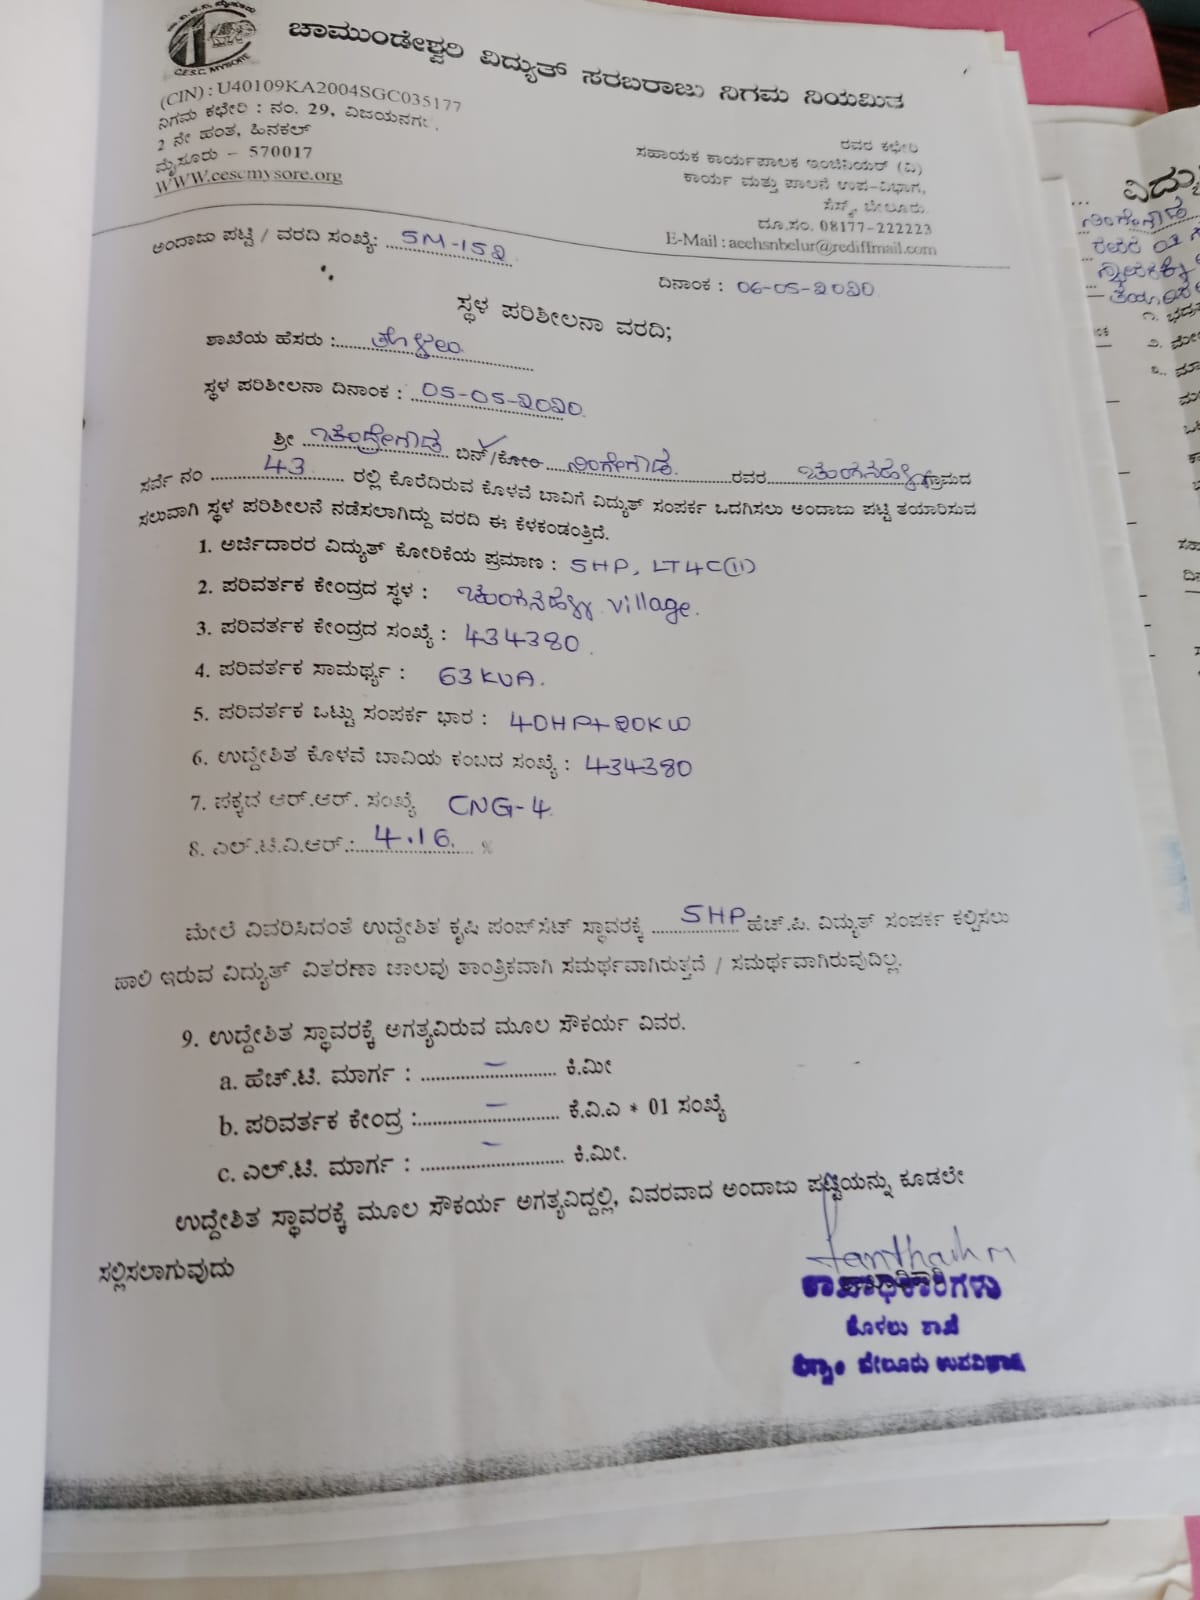 C.E.S.C. MYSORE
ಚಾಮುಂಡೇಶ್ವರಿ ವಿದ್ಯುತ್ ಸರಬರಾಜು ನಿಗಮ ನಿಯಮಿತ
(CIN) : U40109KA2004SGC035177
ನಿಗಮ ಕಛೇರಿ : ನಂ. 29, ವಿಜಯನಗರ,
2 ನೇ ಹಂತ, ಹಿನಕಲ್
ಮೈಸೂರು – 570017
WWW.cescmysore.org
ರವರ ಕಛೇರಿ
ಸಹಾಯಕ ಕಾರ್ಯಪಾಲಕ ಇಂಜಿನಿಯರ್ (ವಿ)
ಕಾರ್ಯ ಮತ್ತು ಪಾಲನೆ ಉಪ-ವಿಭಾಗ,
ಸೆಸ್ಕ್, ಬೇಲೂರು.
ದೂ.ಸಂ. 08177-222223
E-Mail : aeehsnbelur@rediffmail.com
ಅಂದಾಜು ಪಟ್ಟಿ / ವರದಿ ಸಂಖ್ಯೆ: SM-15೩
ದಿನಾಂಕ : 06-05-೩0೩0
ಸ್ಥಳ ಪರಿಶೀಲನಾ ವರದಿ;
ಶಾಖೆಯ ಹೆಸರು :
ಸ್ಥಳ ಪರಿಶೀಲನಾ ದಿನಾಂಕ : 05-05-೩0೩0
ಶ್ರೀ ಚಂದ್ರೇಗೌಡ ಬಿನ್/ಕೋಂ ನಿಂಗೇಗೌಡ ರವರ ಚುಂಗನಹಳ್ಳಿ ಗ್ರಾಮದ
ಸರ್ವೆ ನಂ 43 ರಲ್ಲಿ ಕೊರೆದಿರುವ ಕೊಳವೆ ಬಾವಿಗೆ ವಿದ್ಯುತ್ ಸಂಪರ್ಕ ಒದಗಿಸಲು ಅಂದಾಜು ಪಟ್ಟಿ ತಯಾರಿಸುವ
ಸಲುವಾಗಿ ಸ್ಥಳ ಪರಿಶೀಲನೆ ನಡೆಸಲಾಗಿದ್ದು ವರದಿ ಈ ಕೆಳಕಂಡಂತ್ತಿದೆ.
1. ಅರ್ಜಿದಾರರ ವಿದ್ಯುತ್ ಕೋರಿಕೆಯ ಪ್ರಮಾಣ : 5HP, LT4C(ii)
2. ಪರಿವರ್ತಕ ಕೇಂದ್ರದ ಸ್ಥಳ : ಚುಂಗನಹಳ್ಳಿ village.
3. ಪರಿವರ್ತಕ ಕೇಂದ್ರದ ಸಂಖ್ಯೆ : 434380.
4. ಪರಿವರ್ತಕ ಸಾಮರ್ಥ್ಯ : 63 KVA.
5. ಪರಿವರ್ತಕ ಒಟ್ಟು ಸಂಪರ್ಕ ಭಾರ : 40HP+೩0KW
6. ಉದ್ದೇಶಿತ ಕೊಳವೆ ಬಾವಿಯ ಕಂಬದ ಸಂಖ್ಯೆ : 434380
7. ಪಕ್ಕದ ಆರ್.ಆರ್. ಸಂಖ್ಯೆ CNG-4
8. ಎಲ್.ಟಿ.ವಿ.ಆರ್.: 4.16. %
ಮೇಲೆ ವಿವರಿಸಿದಂತೆ ಉದ್ದೇಶಿತ ಕೃಷಿ ಪಂಪ್‌ಸೆಟ್ ಸ್ಥಾವರಕ್ಕೆ 5HP ಹೆಚ್.ಪಿ. ವಿದ್ಯುತ್ ಸಂಪರ್ಕ ಕಲ್ಪಿಸಲು
ಹಾಲಿ ಇರುವ ವಿದ್ಯುತ್ ವಿತರಣಾ ಜಾಲವು ತಾಂತ್ರಿಕವಾಗಿ ಸಮರ್ಥವಾಗಿರುತ್ತದೆ / ಸಮರ್ಥವಾಗಿರುವುದಿಲ್ಲ.
9. ಉದ್ದೇಶಿತ ಸ್ಥಾವರಕ್ಕೆ ಅಗತ್ಯವಿರುವ ಮೂಲ ಸೌಕರ್ಯ ವಿವರ.
a. ಹೆಚ್.ಟಿ. ಮಾರ್ಗ : – ಕಿ.ಮೀ
b. ಪರಿವರ್ತಕ ಕೇಂದ್ರ : – ಕೆ.ವಿ.ಎ * 01 ಸಂಖ್ಯೆ
c. ಎಲ್.ಟಿ. ಮಾರ್ಗ : – ಕಿ.ಮೀ.
ಉದ್ದೇಶಿತ ಸ್ಥಾವರಕ್ಕೆ ಮೂಲ ಸೌಕರ್ಯ ಅಗತ್ಯವಿದ್ದಲ್ಲಿ, ವಿವರವಾದ ಅಂದಾಜು ಪಟ್ಟಿಯನ್ನು ಕೂಡಲೇ
ಸಲ್ಲಿಸಲಾಗುವುದು
ಶಾಖಾಧಿಕಾರಿಗಳು
ಶಾಖೆ
ಬೇಲೂರು ಉಪವಿಭಾಗ